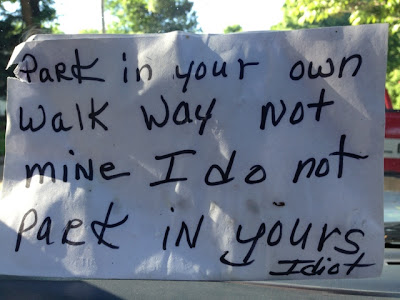 Park in your own
Walk Way Not
mine I do not
Park in yours
Idiot